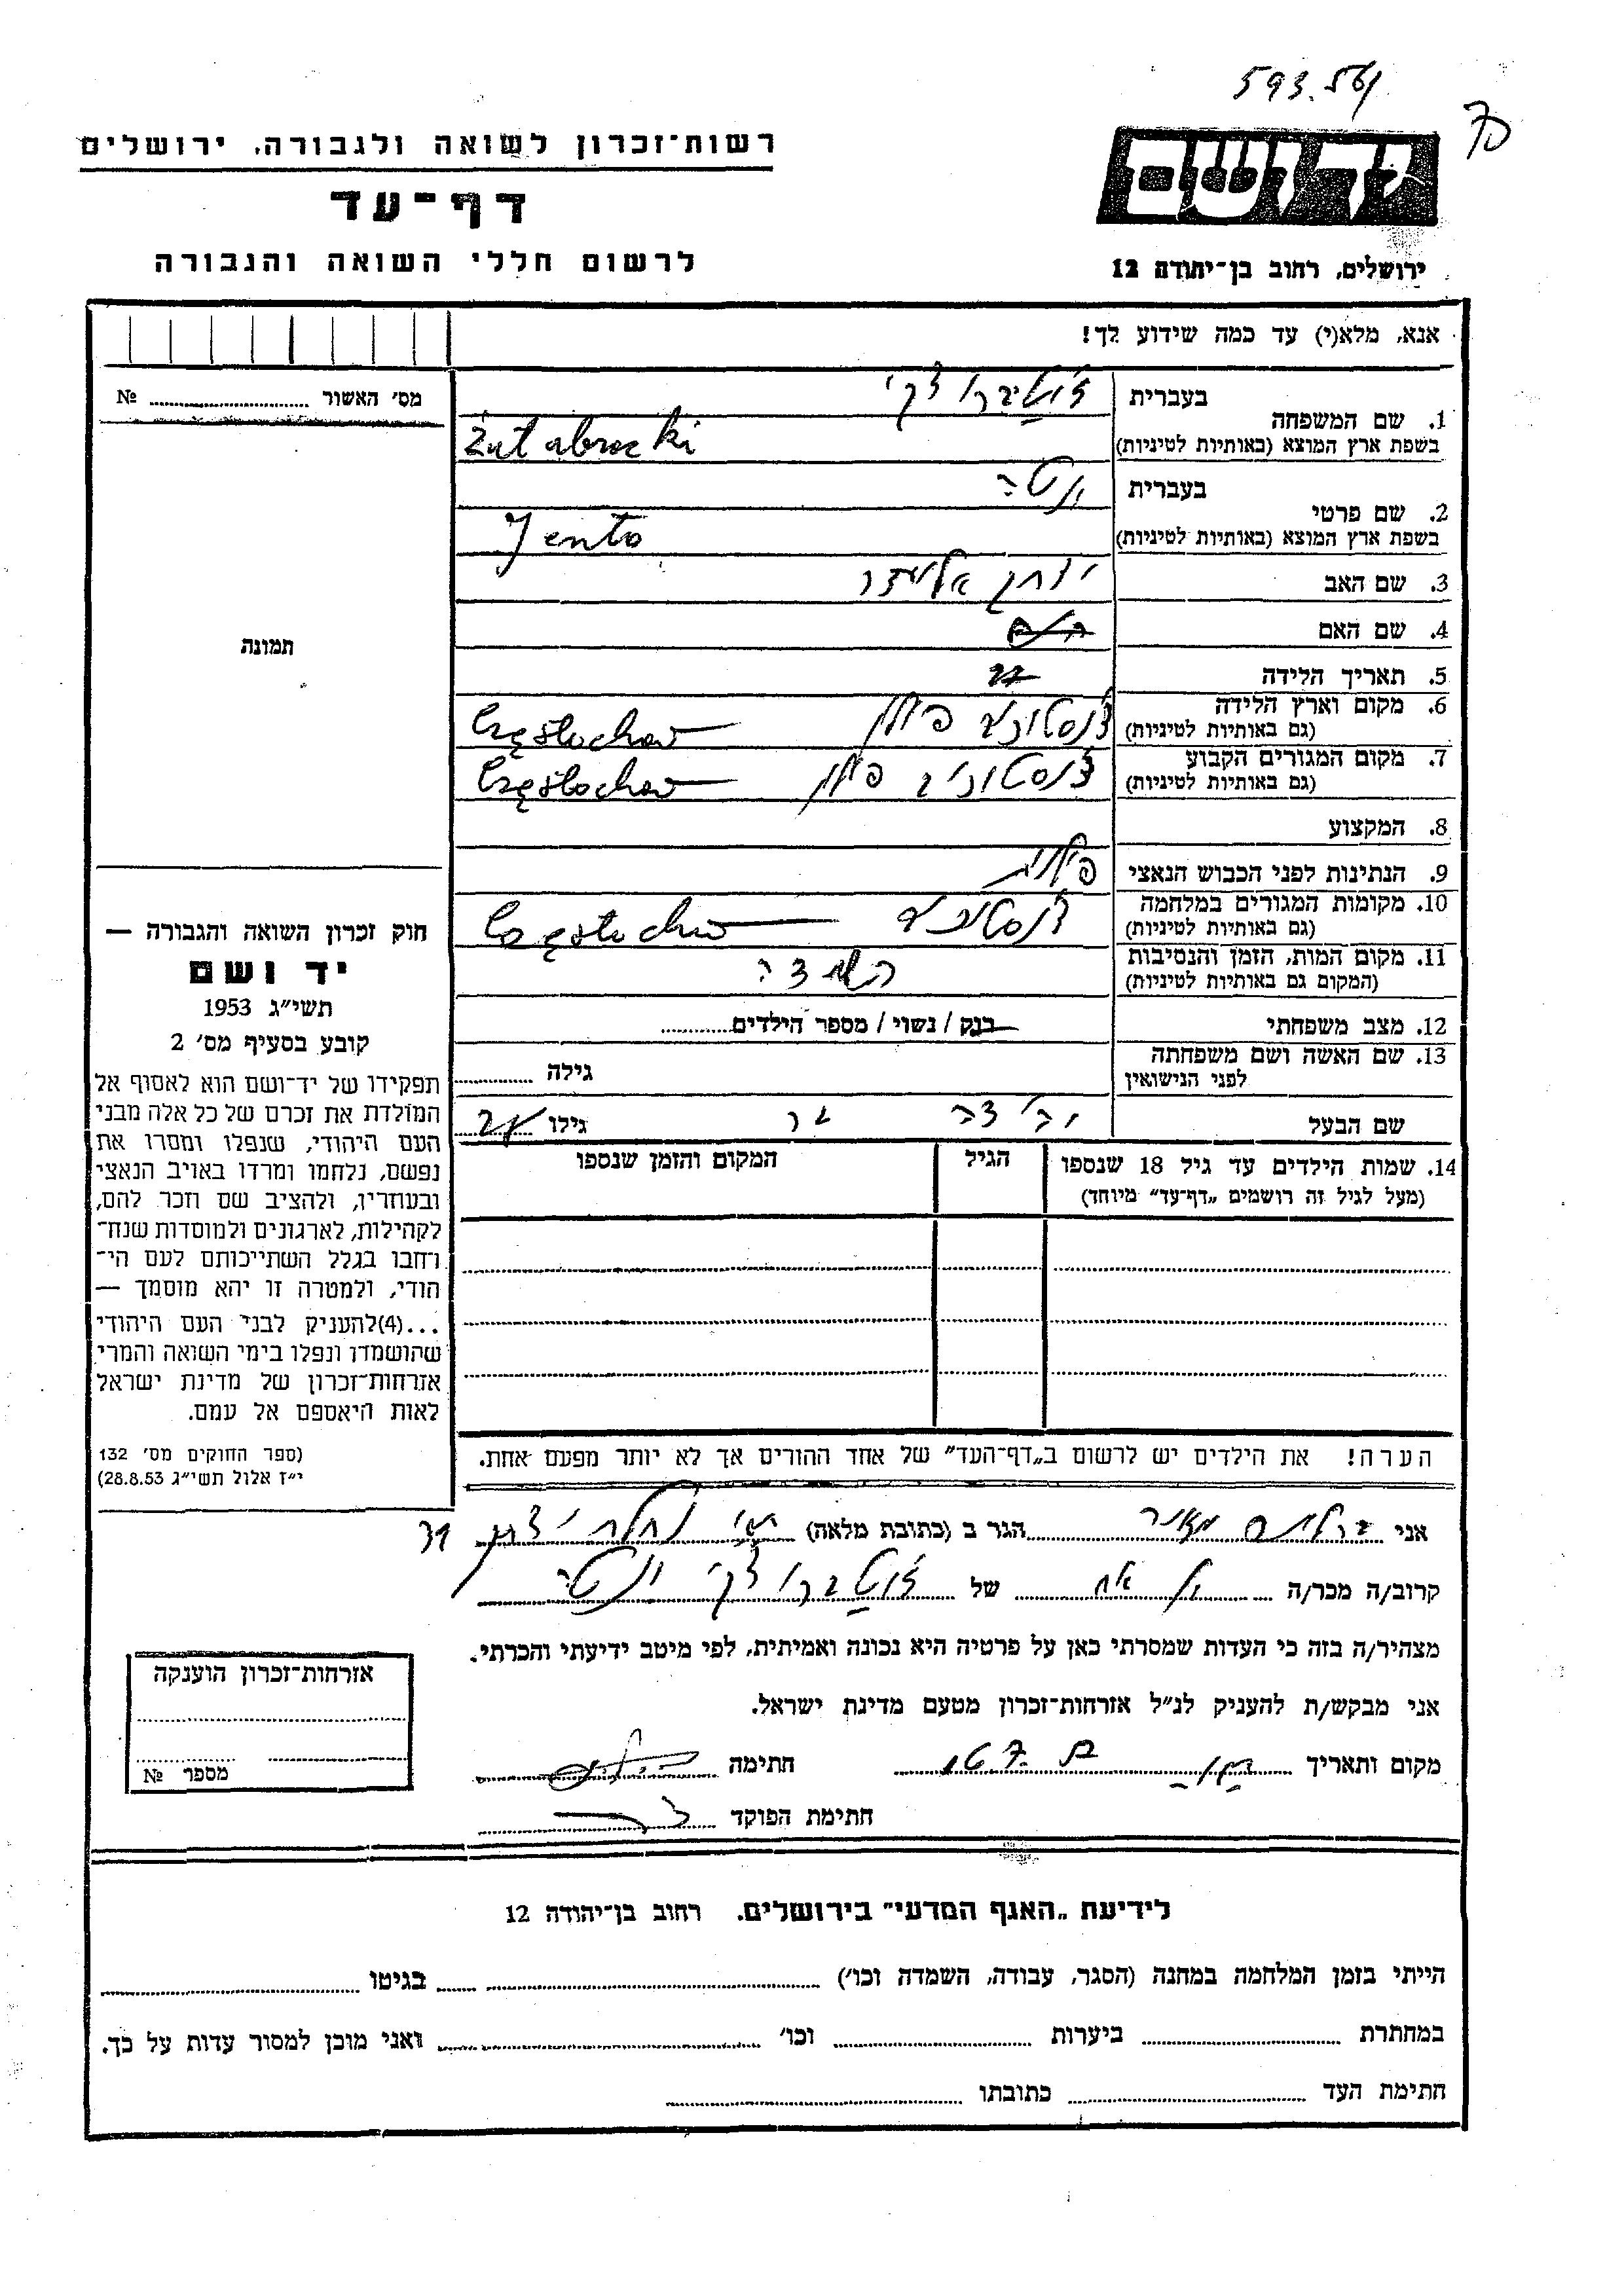 593.561
70
רשות־זכרון לשואה ולגבורה, ירושלים
דף־עד
לרשום חללי השואה והגבורה
יד ושם
ירושלים, רחוב בן־יהודה 12
אנא, מלא(י) עד כמה שידוע לך!
מס׳ האשור № 
1. שם המשפחה
בעברית
בשפת ארץ המוצא (באותיות לטיניות) Żutabrocki
2. שם פרטי
בעברית ינטה
בשפת ארץ המוצא (באותיות לטיניות) Jenta
3. שם האב
4. שם האם
5. תאריך הלידה
6. מקום וארץ הלידה
(גם באותיות לטיניות) פולין Częstochow
7. מקום המגורים הקבוע
(גם באותיות לטיניות) פולין Częstochow
8. המקצוע
9. הנתינות לפני הכבוש הנאצי פולנית
10. מקומות המגורים במלחמה
(גם באותיות לטיניות) Częstochow
11. מקום המות, הזמן והנסיבות
(המקום גם באותיות לטיניות) השמדה
12. מצב משפחתי רנק / נשוי / מספר הילדים
13. שם האשה ושם משפחתה
לפני הנישואין
גילה
שם הבעל
גילו
14. שמות הילדים עד גיל 18 שנספו
(מעל לגיל זה רושמים „דף־עד״ מיוחד)
הגיל
המקום והזמן שנספו
הערה! את הילדים יש לרשום ב„דף־העד״ של אחד ההורים אך לא יותר מפעם אחת.
תמונה
חוק זכרון השואה והגבורה —
יד ושם
תשי״ג 1953
קובע בסעיף מס׳ 2
תפקידו של יד־ושם הוא לאסוף אל
המולדת את זכרם של כל אלה מבני
העם היהודי, שנפלו ומסרו את
נפשם, נלחמו ומרדו באויב הנאצי
ובעוזריו, ולהציב שם וזכר להם,
לקהילות, לארגונים ולמוסדות שנח־
רחבו בגלל השתייכותם לעם הי־
הודי, ולמטרה זו יהא מוסמך —
...(4)להעניק לבני העם היהודי
שהושמדו ונפלו בימי השואה והמרי
אזרחות־זכרון של מדינת ישראל
לאות היאספם אל עמם.
(ספר החוקים מס׳ 132
י״ז אלול תשי״ג 28.8.53)
אני הגר ב (כתובת מלאה) 31
קרוב/ה מכר/ה של ינטה
מצהיר/ה בזה כי העדות שמסרתי כאן על פרטיה היא נכונה ואמיתית, לפי מיטב ידיעתי והכרתי.
אני מבקש/ת להעניק לנ״ל אזרחות־זכרון מטעם מדינת ישראל.
מקום ותאריך חתימה
חתימת הפוקד
אזרחות־זכרון הוענקה
מספר №
לידיעת „האגף המדעי״ בירושלים. רחוב בן־יהודה 12
הייתי בזמן המלחמה במחנה (הסגר, עבודה, השמדה וכו׳) בגיטו
במחתרת ביערות וכו׳ ואני מוכן למסור עדות על כך.
חתימת העד כתובתו